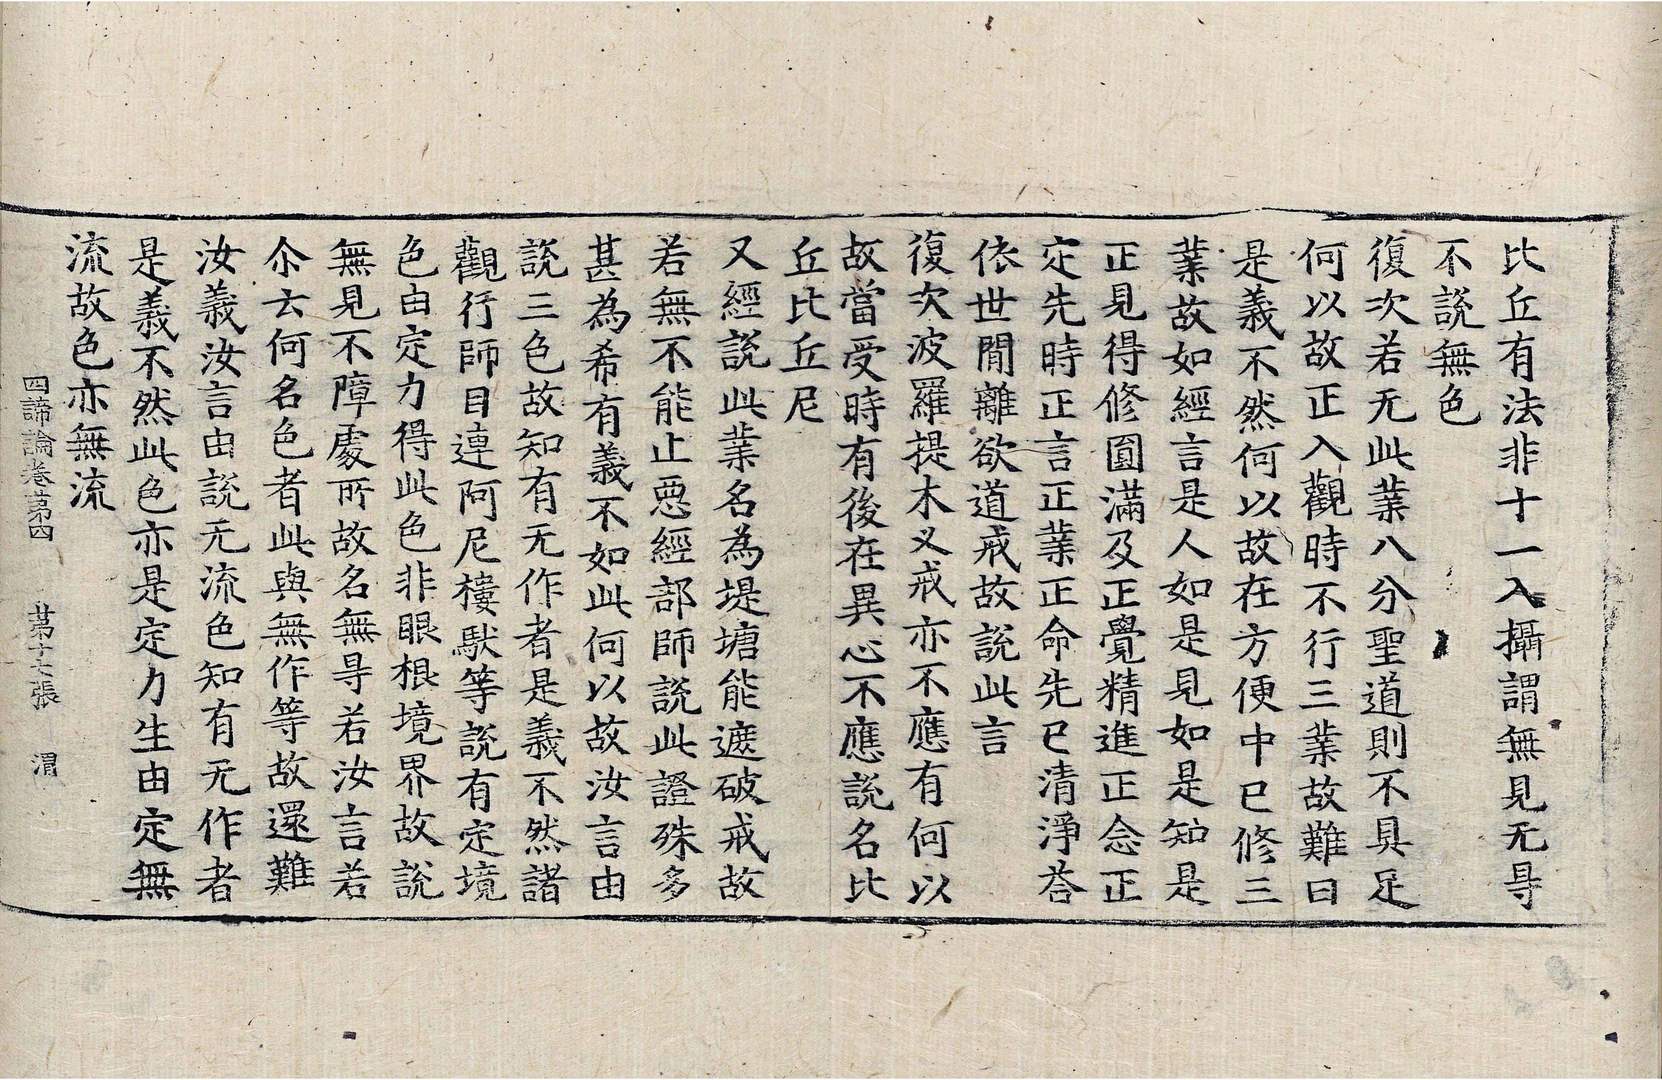 比丘有法非十一入攝謂無見无㝵
不說無色
復次若无此業八分聖道則不具足
何以故正入觀時不行三業故難曰
是義不然何以故在方便中已修三
業故如經言是人如是見如是知是
正見得修圓滿及正覺精進正念正
定先時正言正業正命先已清淨荅
依世間離欲道戒故說此言
復次波羅提木叉戒亦不應有何以
故當受時有後在異心不應說名比
丘比丘尼
又經說此業名為堤塘能遮破戒故
若無不能止惡經部師說此證殊多
甚為希有義不如此何以故汝言由
說三色故知有无作者是義不然諸
觀行師目連阿尼樓馱等說有定境
色由定力得此色非眼根境界故說
無見不障處所故名無㝵若汝言若
尒去何名色者此與無作等故還難
汝義汝言由說无流色知有无作者
是義不然此色亦是定力生由定無
流故色亦無流
四諦論卷第四 第十七張 渭